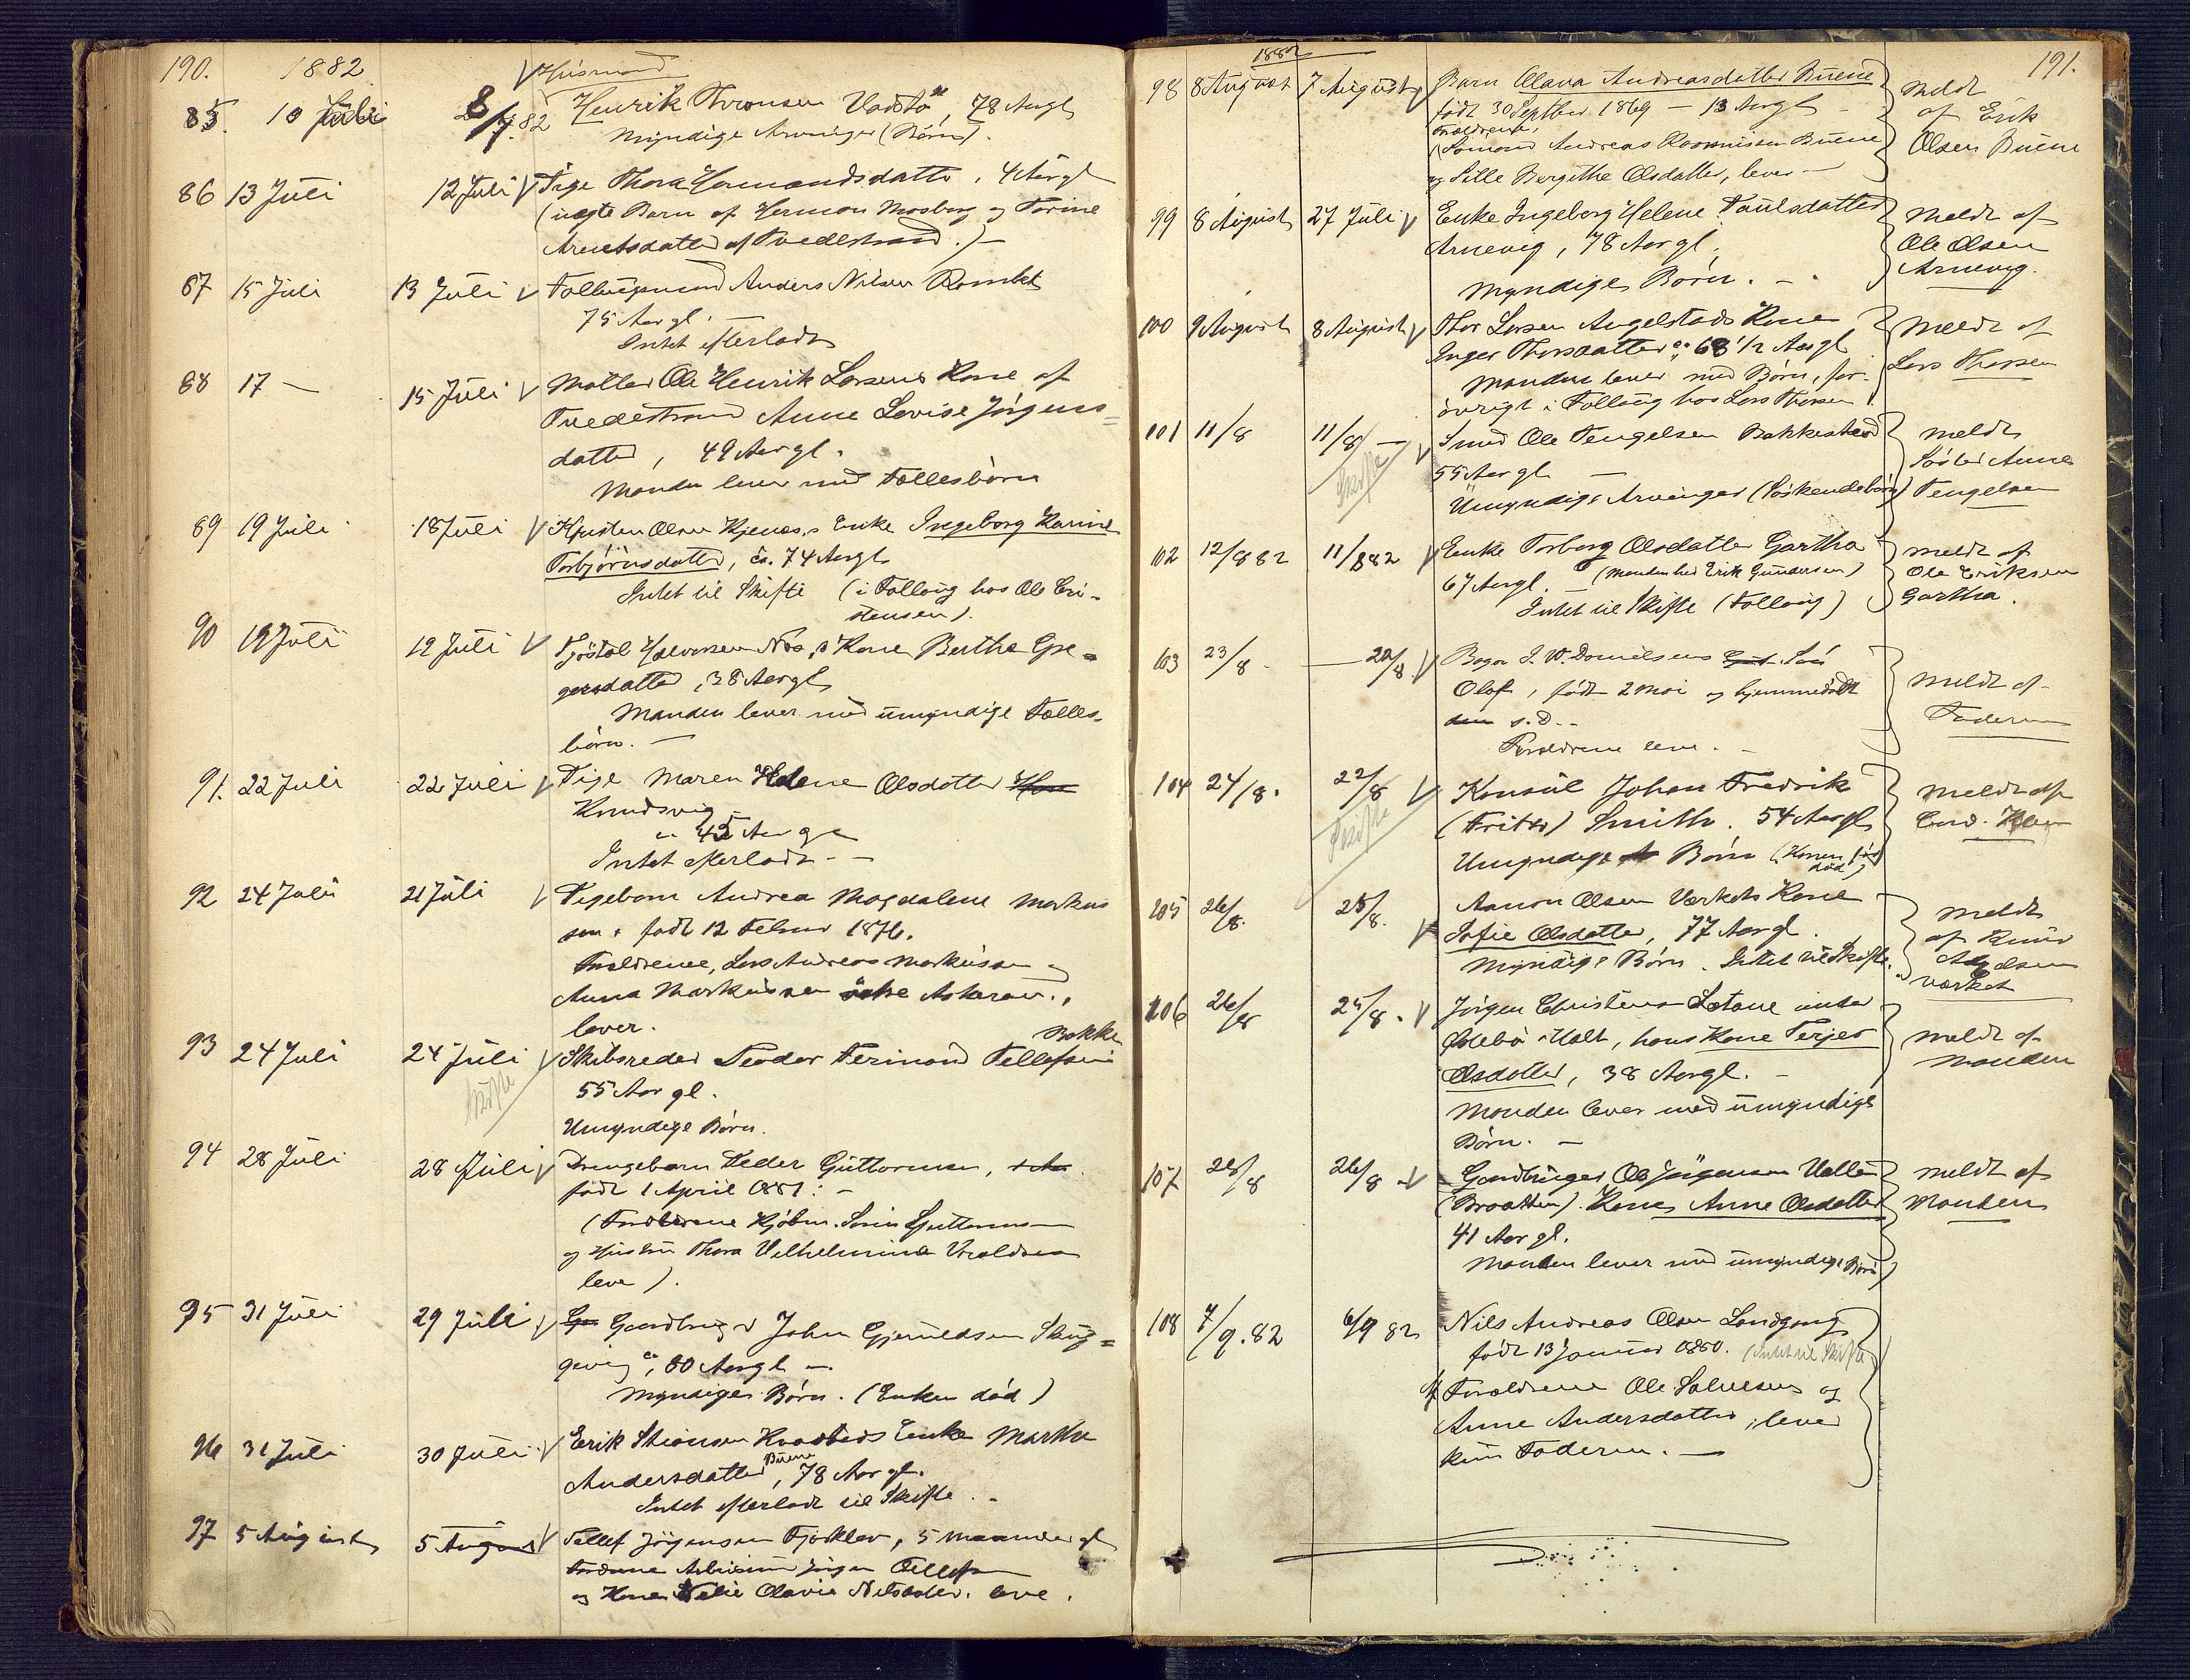 190. 1882
Husmand
85. 10 Juli 8/7.82 Henrik Aronsen 78 Aar gl
Myndige Arvinger (Børn).
86 13 Juli 12 Juli Pige Thora Hermandsdatter, 4 Aar gl
(uægte Barn af Herman Mosberg og Torine
Arentsdatter af Tvedestrand.) —
87 15 Juli 13 Juli Follaugsmand Anders Nilsen
75 Aar gl. —
Intet efterladt
88 17 — 15 Juli Matter Ole Henrik Larsens Kone af
Tvedestrand Anne Lovise Jörgens=
datter, 49 Aar gl.
Manden lever med Fællesbörn
89 19 Juli 18 Juli Kristen Olsen Kjenes,s Enke Ingeborg Karine
Torbjörnsdatter, ca. 74 Aar gl
Intet til Skifte (i Follaug hos Ole Cri-
stensen).
90 19 Juli 19 Juli Tjöstal Halvorsen Næs,s Kone Berthe Gre=
gersdatter, 38 Aar gl
Manden lever med umyndige Fælles-
börn. —
91. 22 Juli 22 Juli Pige Maren Helene Olsdatter
Knudsvig —
Aar gl
Intet efterladt. —
92 24 Juli 21 Juli Pigebarn Andrea Magdalene Markus
sen. født 12 Februar 1876.
Forældrene, Lars Andreas Markussen og
Anna Markussen Askerøen.,
lever.
Bakke
93 24 Juli 24 Juli Skibsreder Peder Ferinand Tellefsen
Skifte
55 Aar gl.
Umyndige Børn.
94 28 Juli 28 Juli Drengebarn Peder Guttormsen,
født 1 April 1881: —
(Forældrene Kjöbm. Sörin Guttormsen
og Hustru Thora Vilhelmine
leve).
95 31 Juli 29 Juli Gaardbruger John Gjeruldsen Skug=
gevig, 80 Aar gl —
Myndige Börn. (Enken död)
96 31 Juli 30 Juli Erik Enke Marthe
Andersdatter Buene, 78 Aar gl.
Intet efterladt til Skifte. -
97 5 August 5 August Tellef Jörgensen Fjæklev, 5 Maaneder gl
Forældrene Arbeidsmand Jörgen Tellefsen
og Kone Olavie Nilsdatter. leve.
1882 191.
98 8 August 7 August Barn Olava Andreasdatter Buene
født 30 Septber 1869 — 13 Aar gl —
Forældrene,
(Sömand Andreas Rasmussen Buene
og Sille Bergithe Olsdatter, lever —
Meldt
af Erik
Olsen Buene
99 8 August 27 Juli Enke Ingeborg Helene Paulsdatter
Arnevig, 78 Aar gl,
Myndige Børn. —
Meldt af
Ole Olsen
Arnevig.
100 9 August 8 August Thor Larsen Angelstads Kone
Inger Thorsdatter ca 68 1/2 Aar gl
Manden lever med Børn, for-
övrigt i Follaug hos Lars Thorsen.
Meldt af
Lars Thorsen
101 11/8 11/8 — Smed Ole Tengelsen Bakkestad
Skifte
55 Aar gl —
Umyndige Arvinger (Söskendebörn)
Meldt
Söster Anne
Tengelsen
102 12/8 82 11/8 82 Enke Torborg Olsdatter Gartha
67 Aar gl. (Manden hed Erik Gundersen)
Intet til Skifte (Follaug)
Meldt af
Ole Eriksen
Gartha.
103 23/8 — 20/8. Bager J. W. Danielsens Sön
Olaf, född 2 Mai og hjemmedöbt
den s.D. -
Forældrene leve. —
Meldt af
Faderen
104 24/8. 22/8 Konsul Johan Fredrik
Skifte
(Fritz) Smith. 54 Aar gl
Umyndige Börn (Konen død)
Meldt af
105 26/8. 25/8. Aanon Olsen Værkets Kone
Sofie Olsdatter, 77 Aar gl.
Myndige Børn. Intet til Skifte.
Meldt
af Knud
Værket
106 26/8 25/8. Jörgen Christensen under
i Holt, hans Kone Terjer
Olsdatter, 38 Aar gl. —
Manden lever med umyndige
Børn. —
Meldt af
Manden
107 28/8 26/8 Gaardbruger Ole Jörgensen
(Braatten). Kone Anne Olsdatter
41 Aar gl.
Manden lever med umyndige Børn)
Meldt af
Manden
108 7/9.82 6/9 82 Nils Andreas Olsen Landgang
født 13 Januar 1880. (Intet til Skifte)
Forældrene Ole Salvesen og
Anne Andersdatter, lever
kun Faderen. —